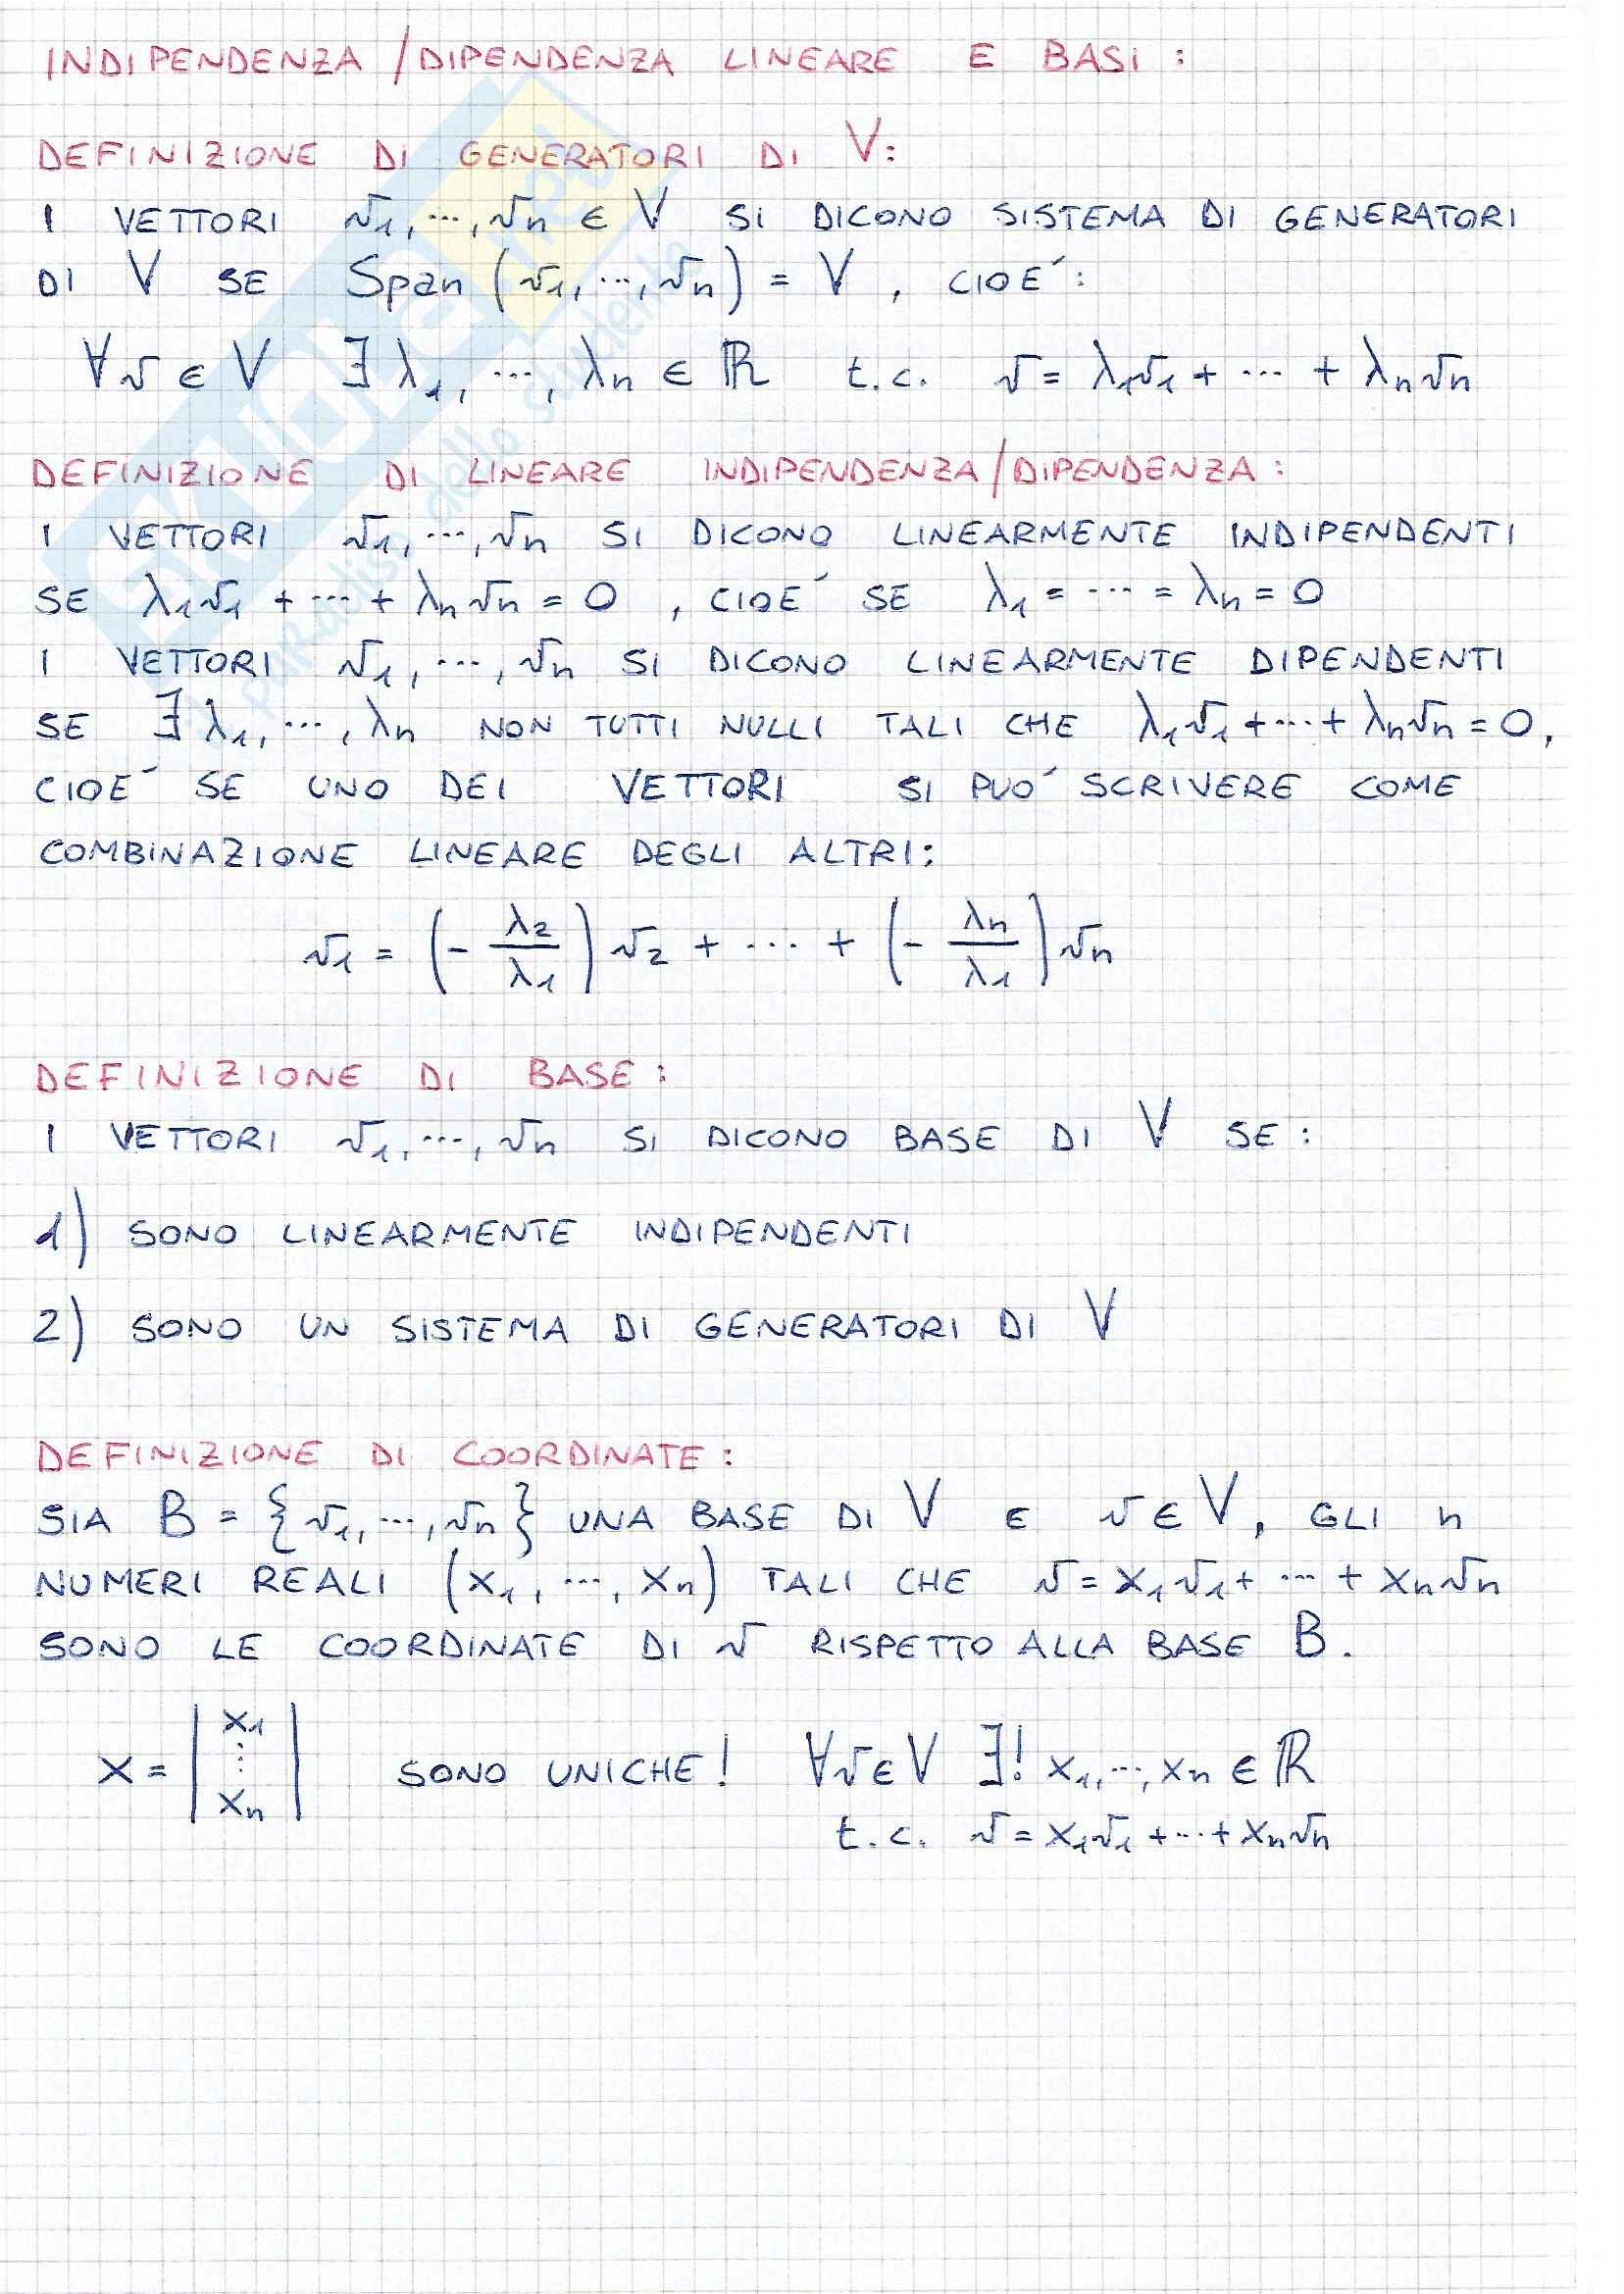 INDIPENDENZA/DIPENDENZA LINEARE E BASI:
DEFINIZIONE DI GENERATORI DI V:
I VETTORI v₁, ..., vₙ ∈ V SI DICONO SISTEMA DI GENERATORI
DI V SE Span (v₁, ..., vₙ) = V , CIOE´:
∀ v ∈ V ∃ λ₁, ..., λₙ ∈ ℝ t.c. v = λ₁v₁ + ... + λₙvₙ
DEFINIZIONE DI LINEARE INDIPENDENZA/DIPENDENZA:
I VETTORI v₁, ..., vₙ SI DICONO LINEARMENTE INDIPENDENTI
SE λ₁v₁ + ... + λₙvₙ = 0 , CIOE´ SE λ₁ = ... = λₙ = 0
I VETTORI v₁, ..., vₙ SI DICONO LINEARMENTE DIPENDENTI
SE ∃ λ₁, ..., λₙ NON TUTTI NULLI TALI CHE λ₁v₁ + ... + λₙvₙ = 0,
CIOE´ SE UNO DEI VETTORI SI PUO´ SCRIVERE COME
COMBINAZIONE LINEARE DEGLI ALTRI:
v₁ = (- λ₂/λ₁) v₂ + ... + (- λₙ/λ₁) vₙ
DEFINIZIONE DI BASE:
I VETTORI v₁, ..., vₙ SI DICONO BASE DI V SE:
1) SONO LINEARMENTE INDIPENDENTI
2) SONO UN SISTEMA DI GENERATORI DI V
DEFINIZIONE DI COORDINATE:
SIA B = {v₁, ..., vₙ} UNA BASE DI V E v ∈ V, GLI n
NUMERI REALI (x₁, ..., xₙ) TALI CHE v = x₁v₁ + ... + xₙvₙ
SONO LE COORDINATE DI v RISPETTO ALLA BASE B.
x = | x₁ ⋮ xₙ | SONO UNICHE! ∀ v ∈ V ∃! x₁, ..., xₙ ∈ ℝ
t.c. v = x₁v₁ + ... + xₙvₙ
SKUOLA.net
paradiso dello studente